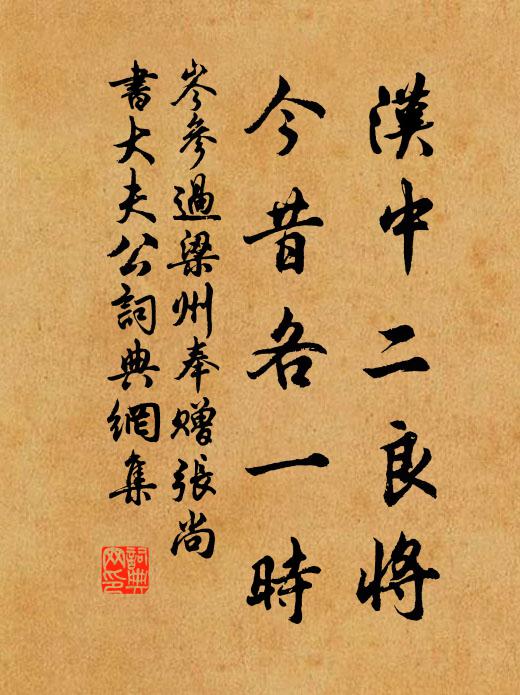 漢中二良將
今昔各一時
岑參過梁州奉贈張尚
書大夫公詞典網集
詞典網印